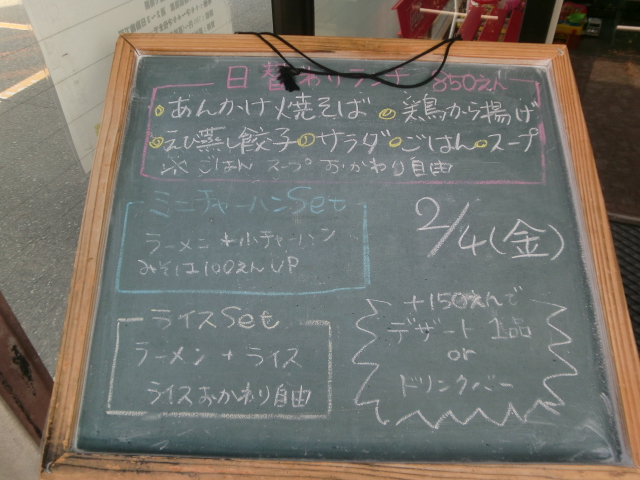 日替わりランチ 850えん
①あんかけ焼そば ②鶏から揚げ
③えび蒸し餃子 サラダ ごはん スープ
※ ごはん スープ おかわり自由
ミニチャーハンSet
ラーメン + 小チャーハン
みそは100えんUP
2/4(金)
ライスSet
ラーメン + ライス
ライスおかわり自由
+150えんで
デザート 1品
or
ドリンクバー